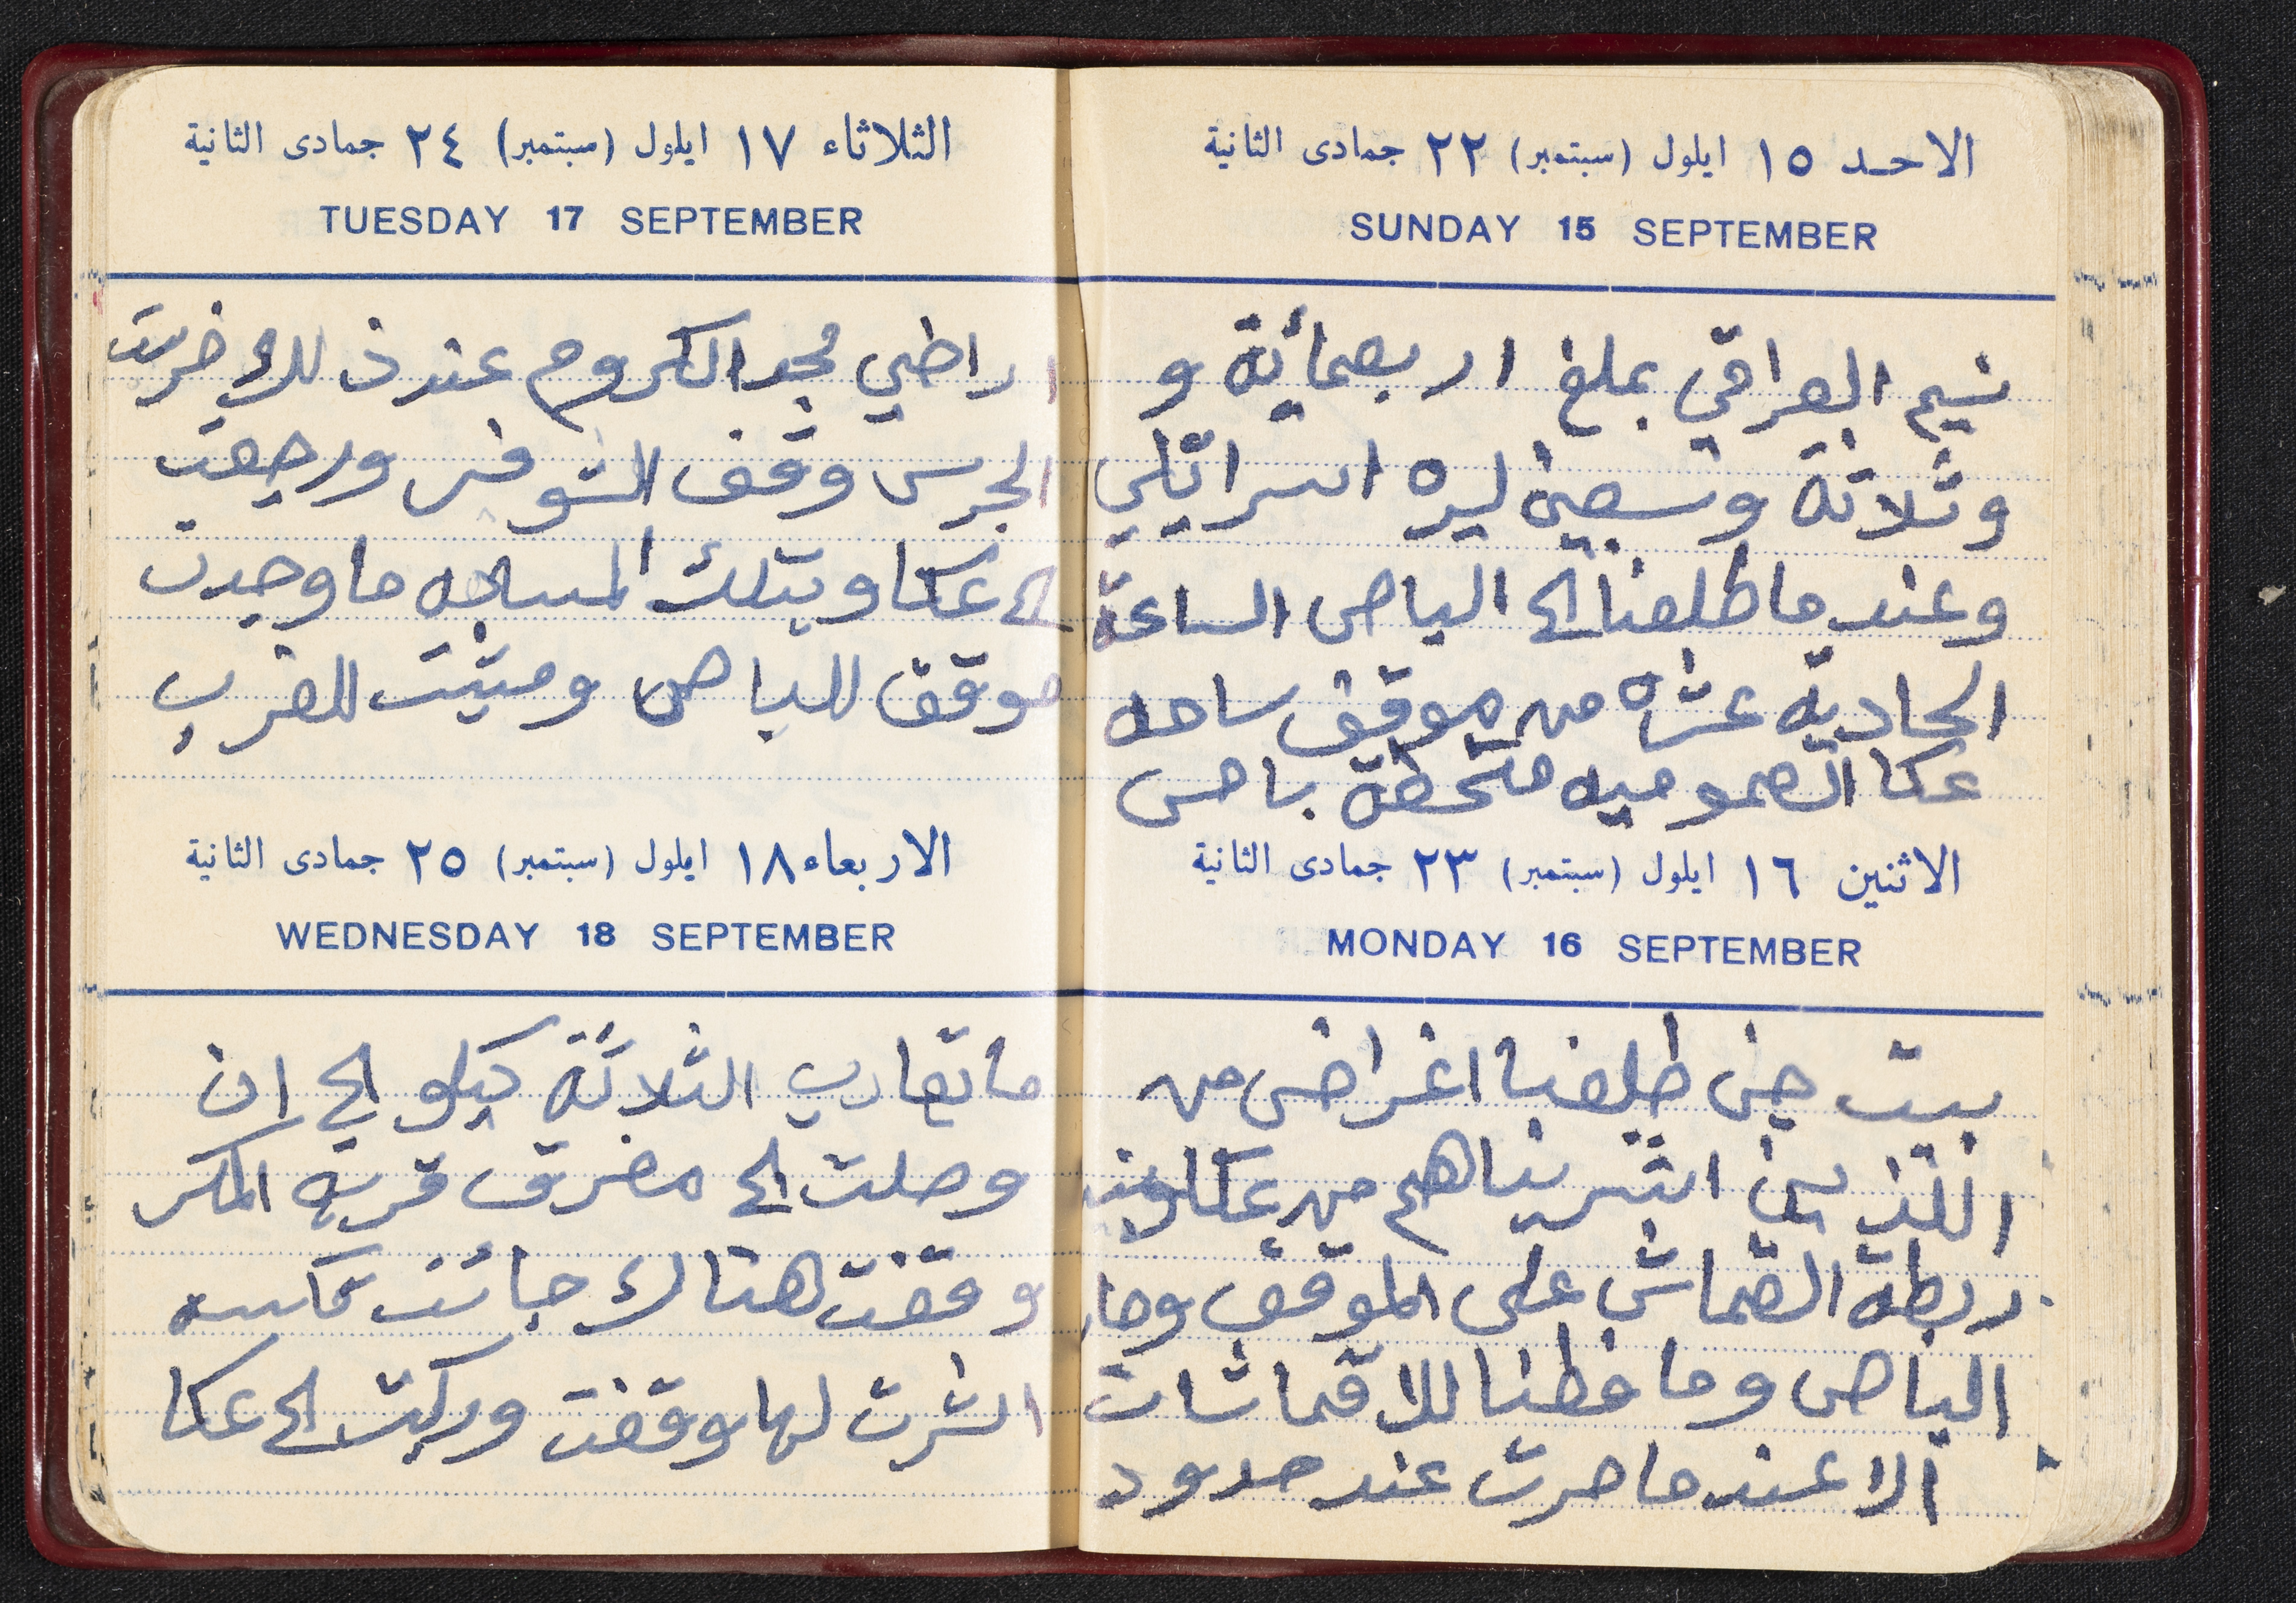 الاحد ١٥ ايلول (سبتمبر) ٢٢ جمادى الثانية
SUNDAY 15 SEPTEMBER
نسيم العراقي بملغ اربعمائة و
وثلاثة وسبعين ليره اسرائيلي
وعند ما طلعنا الى الباص الساعة
الحادية عشره من موقف ساحه
عكا العموميه محطة باص
الاثنين ١٦ ايلول (سبتمبر) ٢٣ جمادى الثانية
MONDAY 16 SEPTEMBER
بيت جن طلعنا اغراض من
اللذين اشتريناهم من عكا
ربطة القماش على الموقف
الباص وما فطنا للاقماشات
الا عند ما صرت عند حدود
الثلاثاء ١٧ ايلول (سبتمبر) ٢٤ جمادى الثانية
TUESDAY 17 SEPTEMBER
اراضي مجد الكروم عند ذلك ضربت
الجرس وقف الشوفر ورجعت
الى عكا وبتلك المساحه ما وجدت
موقف للباص ومشيت للغرب
الاربعاء ١٨ ايلول (سبتمبر) ٢٥ جمادى الثانية
WEDNESDAY 18 SEPTEMBER
ما تقارب الثلاثة كيلو الى ان
وصلت الى مفرق قريه المكر
وقفت هناك جائت تكسه
اشرت لها وقفت وركبت الى عكا